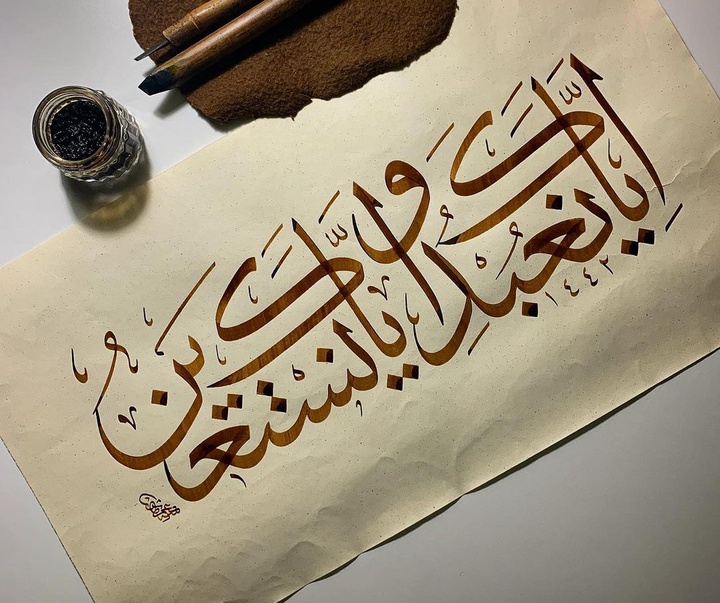 إِيَّاكَ نَعْبُدُ وَإِيَّاكَ نَسْتَعِينُ
١٤٤٢